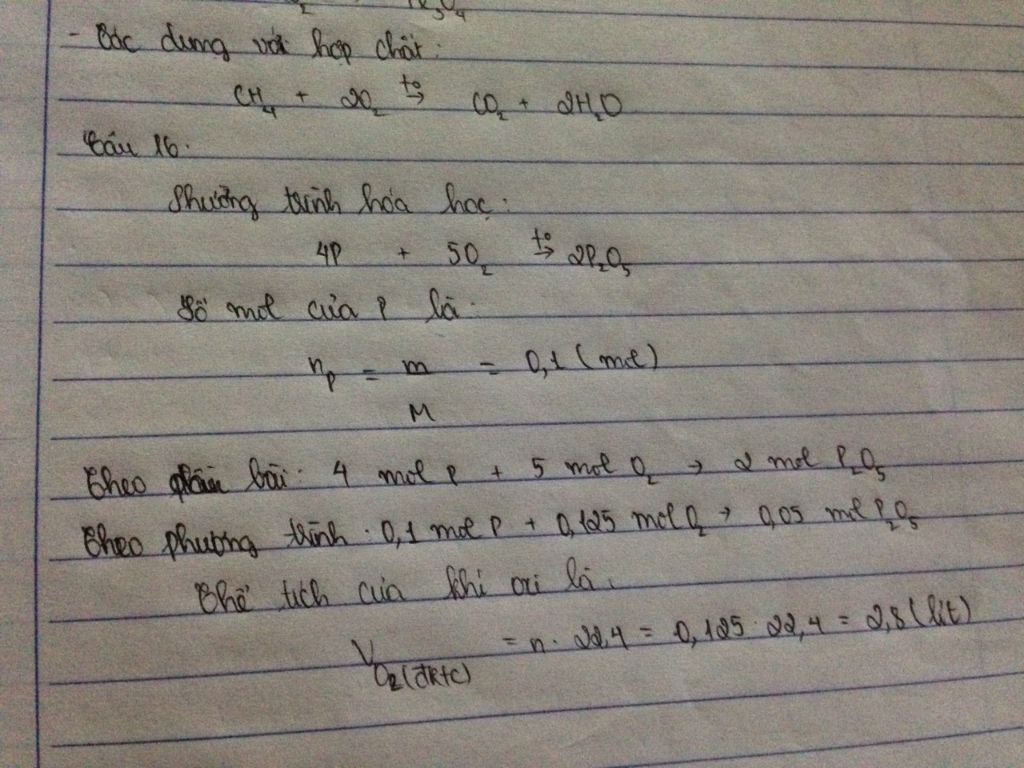 - Tác dụng với hợp chất:
CH₄ + 2O₂ t°→ CO₂ + 2H₂O
Câu 16.
Phương trình hóa học:
4P + 5O₂ t°→ 2P₂O₅
Số mol của P là:
nₚ = m/M = 0,1 (mol)
Theo bài: 4 mol P + 5 mol O₂ → 2 mol P₂O₅
Theo phương trình: 0,1 mol P + 0,125 mol O₂ → 0,05 mol P₂O₅
Thể tích của khí oxi là:
V O₂(đktc) = n . 22,4 = 0,125 . 22,4 = 2,8 (lít)